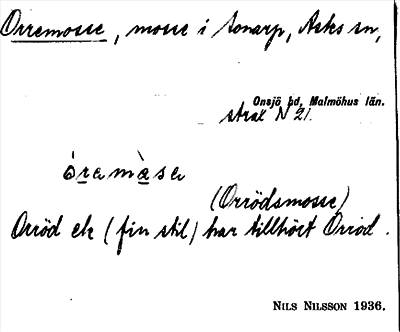 Orremosse, mosse i Sonarp, Asks sn,
Onsjö hd, Malmöhus län.
strax N 21.
òremàse
(Orrödsmosse)
Orröd ek (fin stil) har tillhört Orröd.
NILS NILSSON 1936.